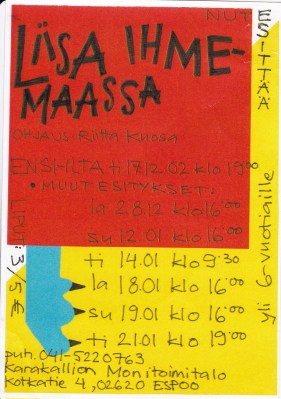 NUT
ESITTÄÄ
LIISA IHME-
MAASSA
OHJAUS: Riitta Kuosa
ENSI-ILTA ti 17.12.02 klo 19:00
• MUUT ESITYKSET:
la 28.12 klo 16:00
su 12.01 klo 16:00
ti 14.01 klo 9:30
la 18.01 klo 16:00
su 19.01 klo 16:00
ti 21.01 klo 19:00
LIPUT: 3/5 €
yli 6-vuotiaille
puh. 041-5220763
Karakallion Monitoimitalo
Kotkatie 4, 02620 ESPOO